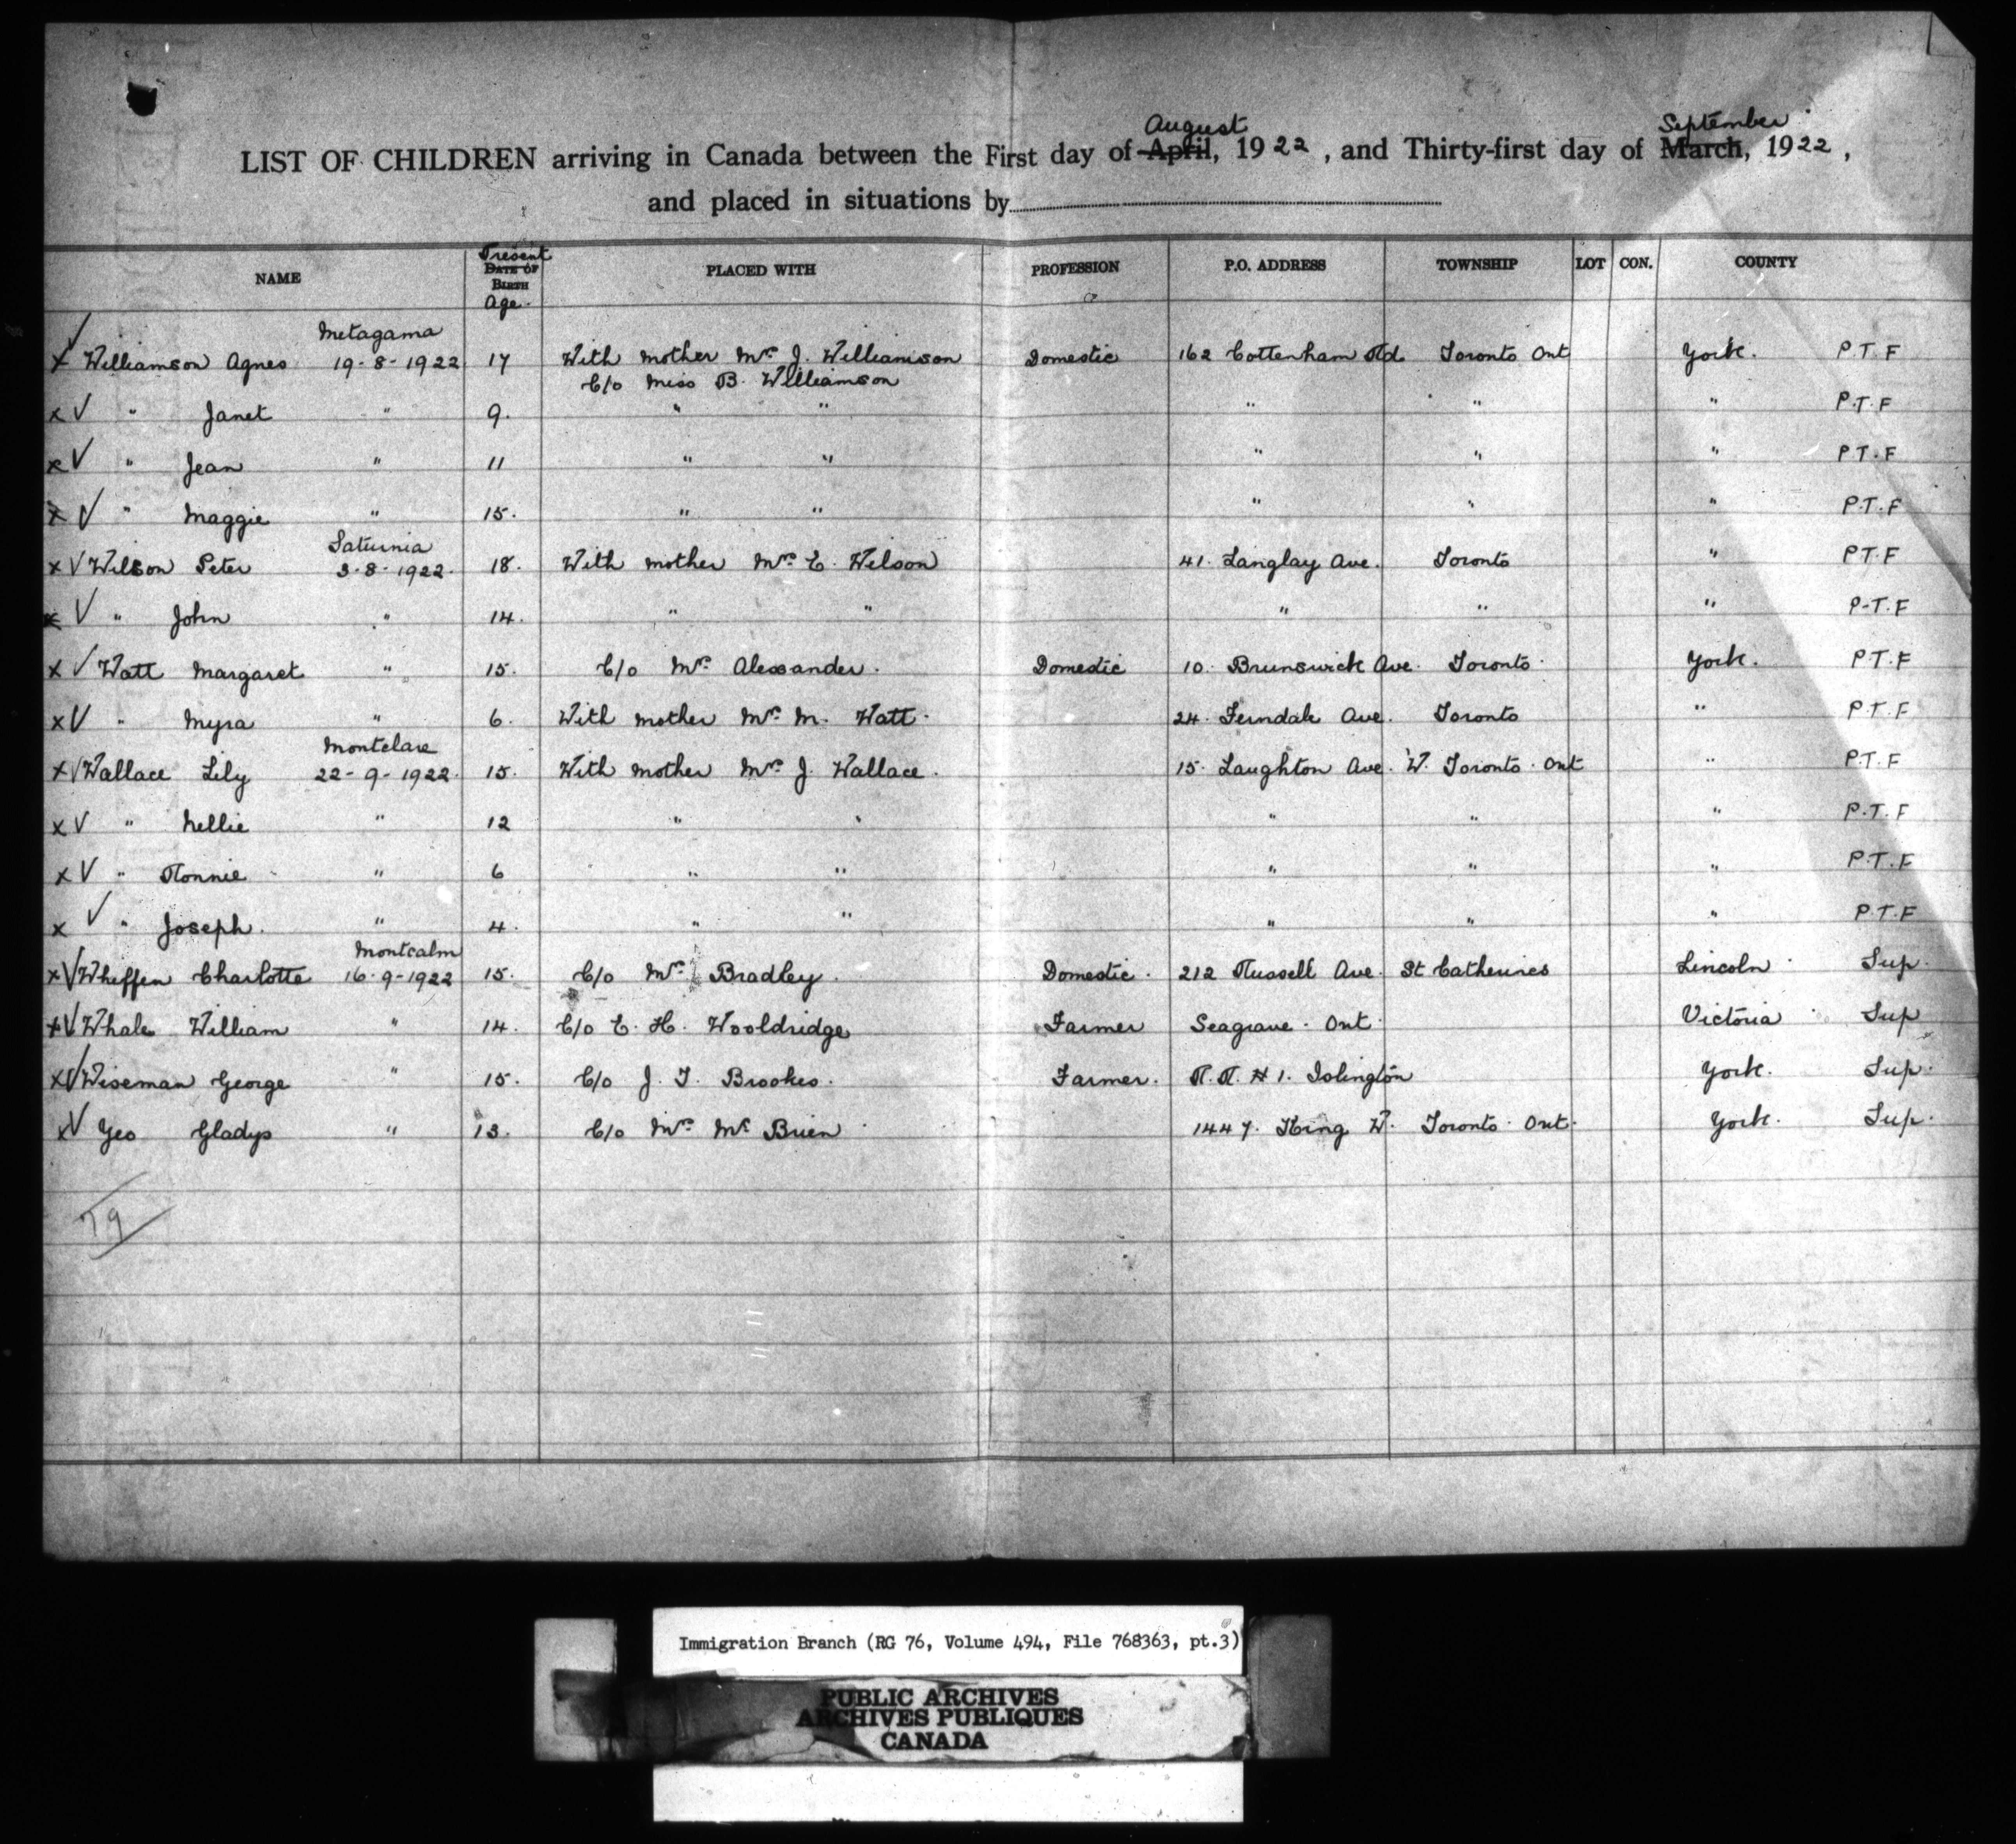 August September
LIST OF CHILDREN arriving in Canada between the First day of April, 1922, and Thirty-first day of March, 1922,
and placed in situations by
NAME Present DATE OF BIRTH Age. PLACED WITH PROFESSION P.O. ADDRESS TOWNSHIP LOT CON. COUNTY
Metagama
x Williamson Agnes 19-8-1922 17 With mother Mrs. J. Williamson Domestic 162 Cottenham Rd. Toronto Ont York. P.T.F
C/o Miss B. Williamson
x " Janet " 9. " " " " " P.T.F
x " Jean " 11 " " " " " P.T.F
x " Maggie " 15. " " " " " P.T.F
Saturnia
x Wilson Peter 3-8-1922. 18. With mother Mrs. E. Wilson 41. Langlay Ave. Toronto " P.T.F
x " John " 14. " " " " " P-T.F
x Watt Margaret " 15. C/o Mrs. Alexander. Domestic 10. Brunswick Ave. Toronto. York. P.T.F
x " Myra " 6. With mother Mrs. M. Watt. 24. Ferndale Ave. Toronto " P.T.F
Montclare
x Wallace Lily 22-9-1922. 15. With mother Mrs. J. Wallace. 15. Laughton Ave. W. Toronto. Ont " P.T.F
x " Nellie " 12 " " " " " P.T.F
x " Ronnie " 6 " " " " " P.T.F
x " Joseph. " 4. " " " " " P.T.F
Montcalm
x Wheffen Charlotte 16-9-1922 15. C/o Mrs. Bradley. Domestic. 212 Russell Ave. St Catherines Lincoln Sup.
x Whale William " 14. C/o E. H. Wooldridge Farmer Seagrave. Ont. Victoria Sup
x Wiseman George " 15. C/o J. T. Brookes. Farmer. R.R. # 1. Islington York. Sup.
x Yeo Gladys " 13. C/o Mrs. Mc Brien 1447. King W. Toronto. Ont. York. Sup.
79
Immigration Branch (RG 76, Volume 494, File 768363, pt.3)
PUBLIC ARCHIVES
ARCHIVES PUBLIQUES
CANADA